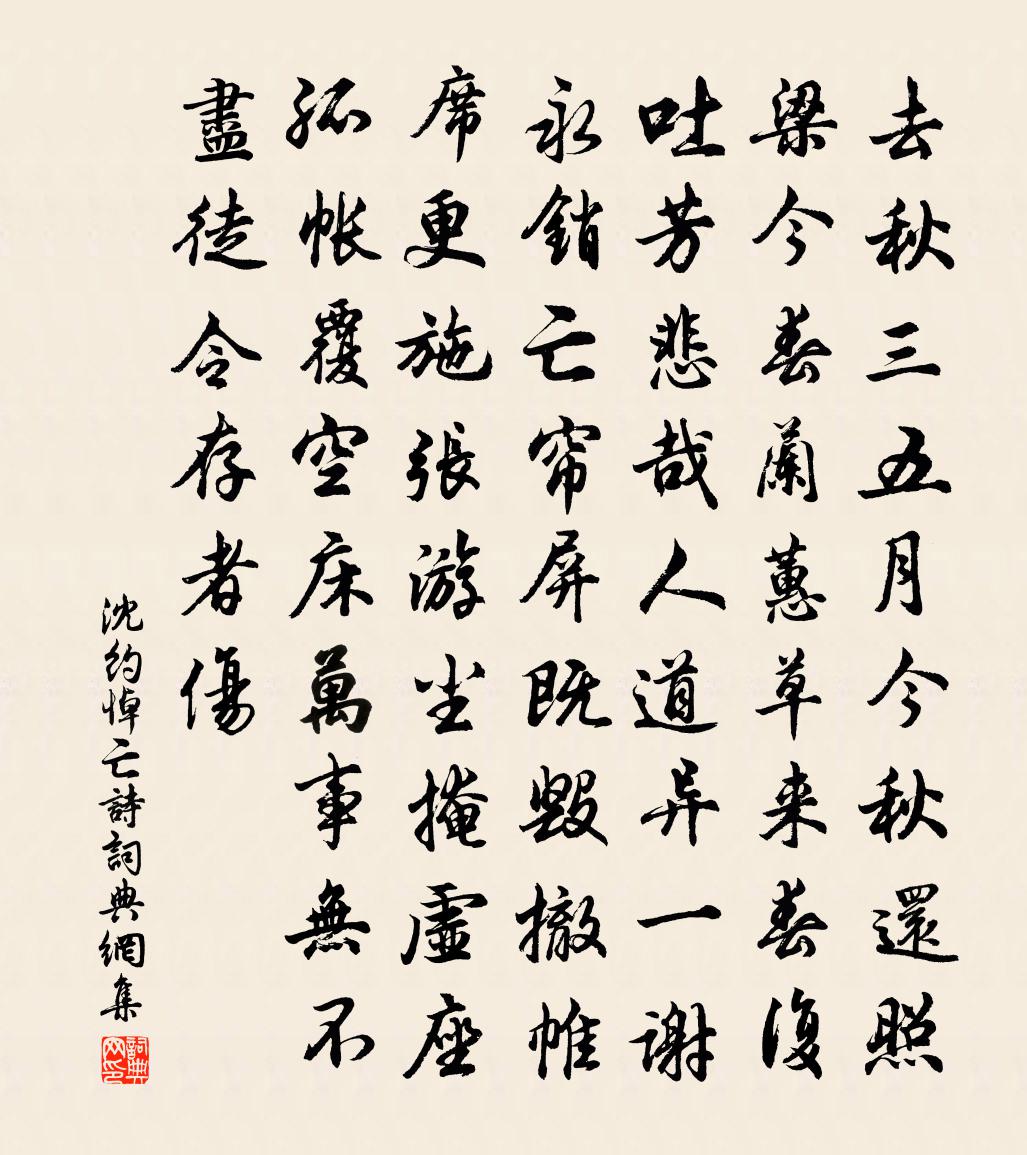 去秋三五月今秋還照
梁今春蘭蕙草来春復
吐芳悲哉人道异一谢
永銷亡帘屏既毀撤帷
席更施張游尘掩虛座
孤帐覆空床萬事無不
盡徒令存者傷
沈約悼亡詩詞典網集
詞典网印